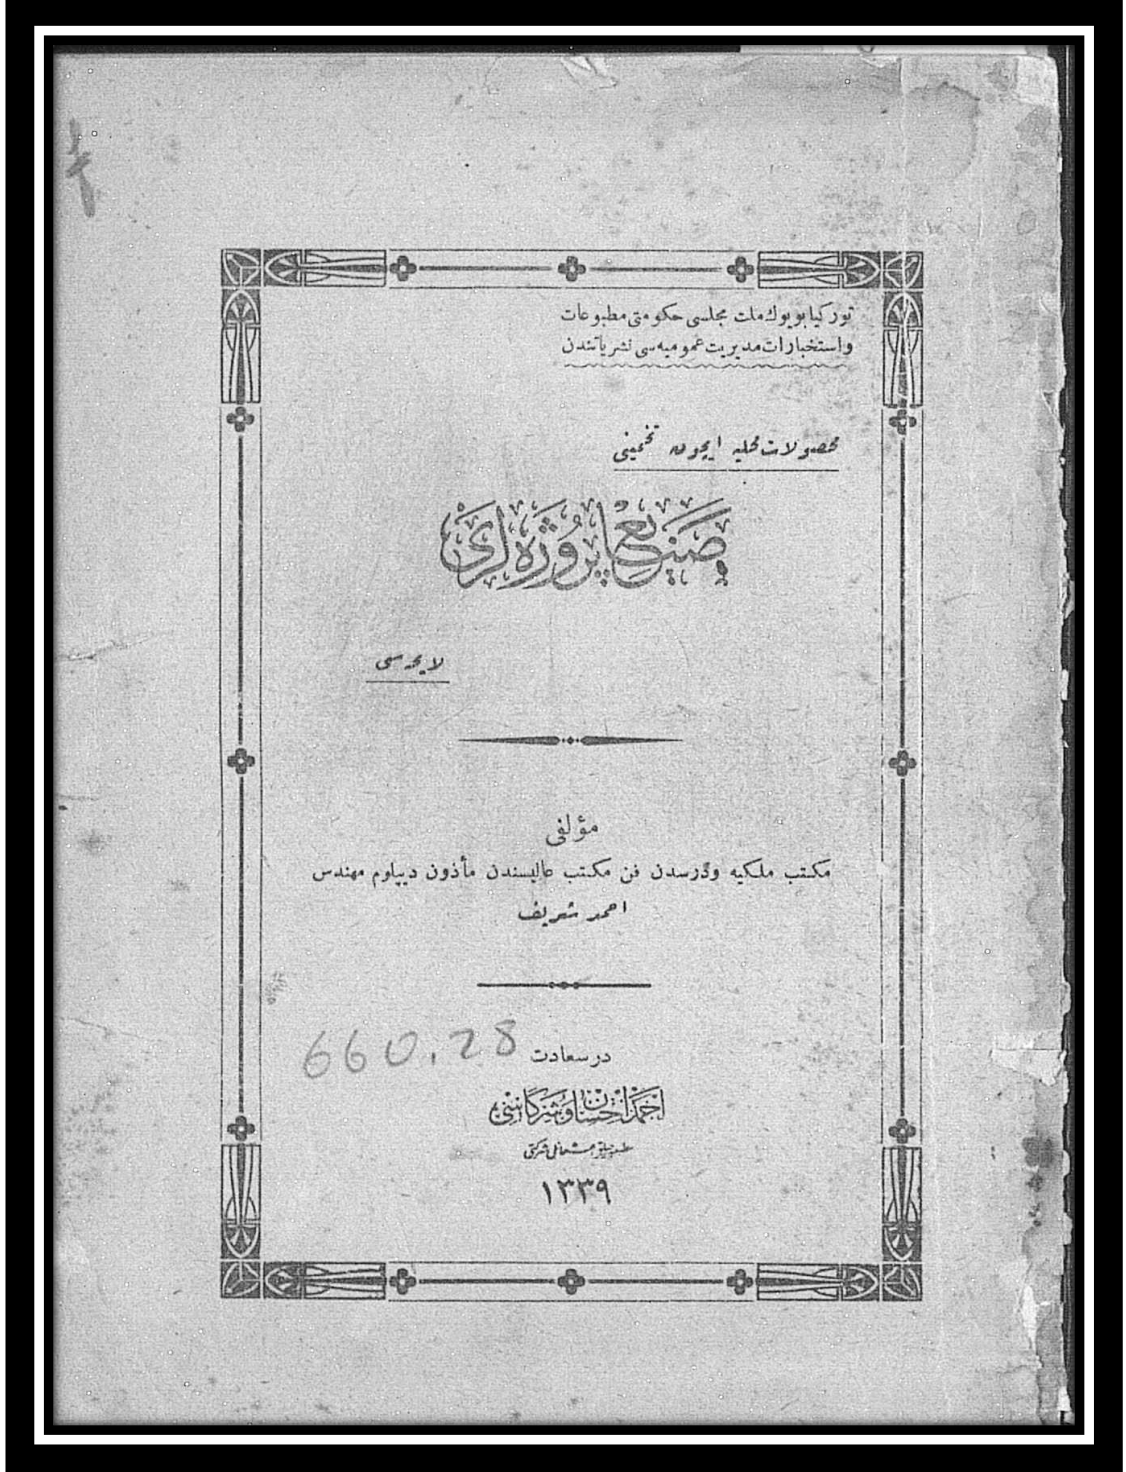 توركيا بويوك ملت مجلسى حكومتى مطبوعات
واستخبارات مديريت عموميه سى نشرياتندن
محصولات محليه ايچون تخمينى
صنايع پروژه لرى
لايحه سى
مؤلفى
مكتب ملكيه ودرسدن فن مكتب عاليسندن مأذون ديپلوم مهندس
احمد شريف
660.28
درسعادت
احمد احسان وشركاسى
مطبعه جيلق عثمانلى شركتى
١٣٣٩